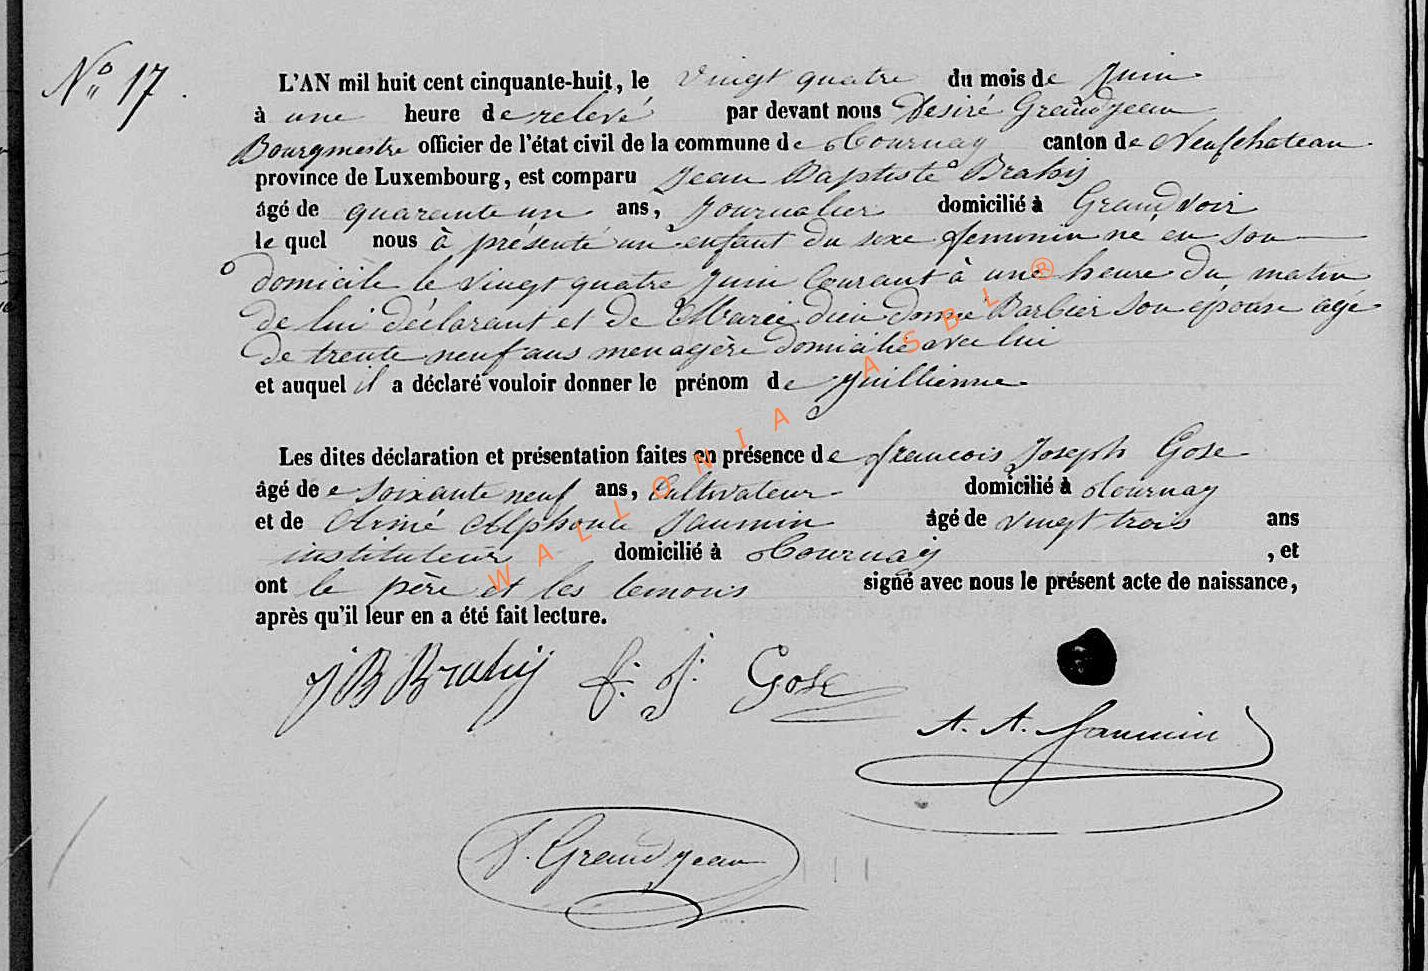 No 17.
L'AN mil huit cent cinquante-huit, le vingt quatre du mois de Juin
à une heure de relevé par devant nous Desiré Grandjean
Bourgmestre officier de l'état civil de la commune de Tournay canton de Neufchateau
province de Luxembourg, est comparu Jean Baptiste Brahy
âgé de quarante un ans, Journalier domicilié à Grandvoir
le quel nous à présenté un enfant du sexe femminin né en son
domicile le vingt quatre Juin Courant à une heure du matin
de lui déclarant et de Marie dieu donné Barbier son épouse agé
de trente neuf ans menagère domicilié avec lui
et auquel il a déclaré vouloir donner le prénom de Juillienne
Les dites déclaration et présentation faites en présence de francois Joseph Gose
âgé de soixante neuf ans, Cultivateur domicilié à Tournay
et de Aimé Alphonse Jaumin âgé de vingt trois ans
instituteur domicilié à Tournay , et
ont le père et les temoins signé avec nous le présent acte de naissance,
après qu'il leur en a été fait lecture.
J B Brahy f. J. Gose
A. A. Jaumin
D. Grandjean
WALLONIA ASBL ®